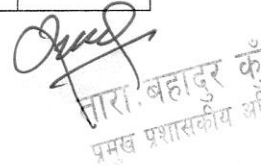 तारा बहादुर
प्रमुख प्रशासकीय